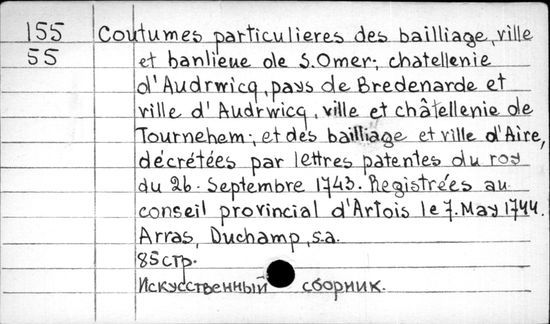 155 Coutumes particulieres des bailliage, ville
55 et banlieue de S.Omer; chatellenie
d'Audrwicq, pays de Bredenarde et
ville d'Audrwicq, ville et châtellenie de
Tournehem; et des bailliage et ville d'Aire,
décrétées par lettres patentes du roy
du 26. Septembre 1743. Registrées au
conseil provincial d'Artois le 7. May 1744.
Arras, Duchamp, s.a.
85 стр.
Искусственный сборник.